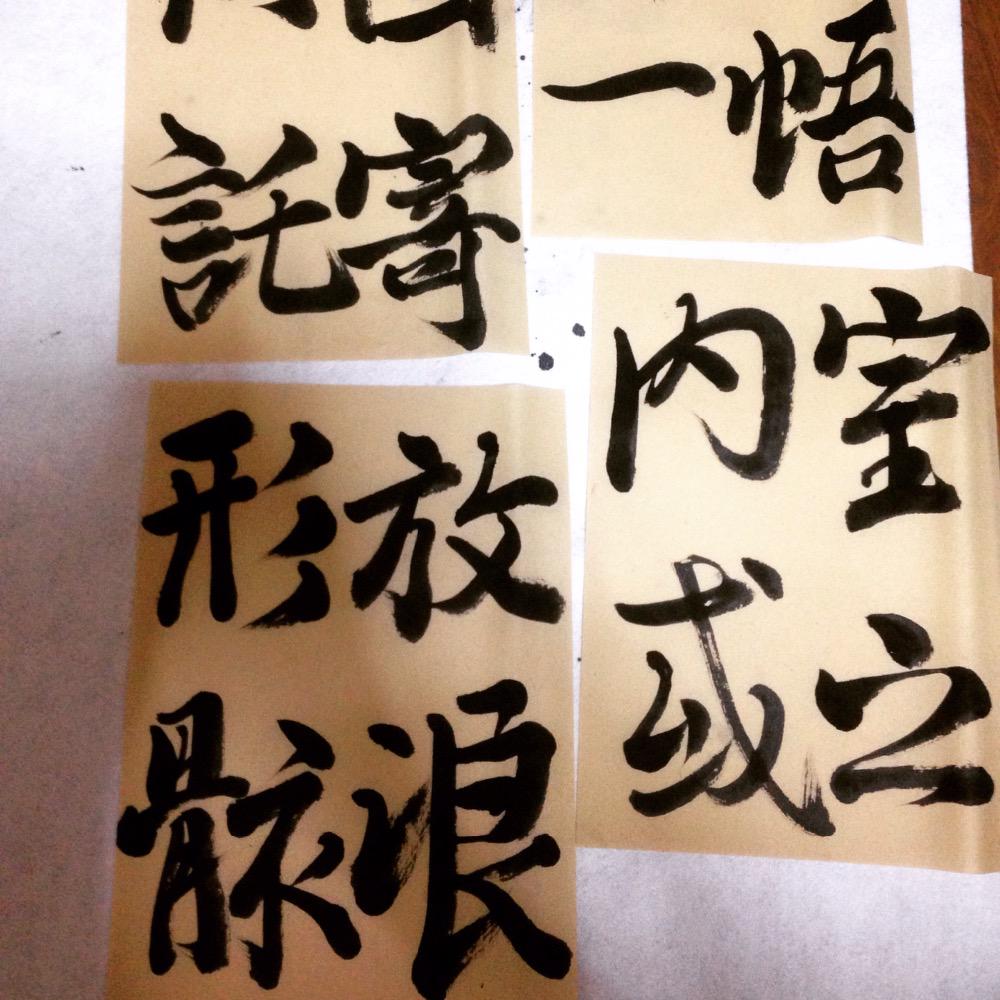 悟
一
室之
内或
寄
託
放浪
形骸